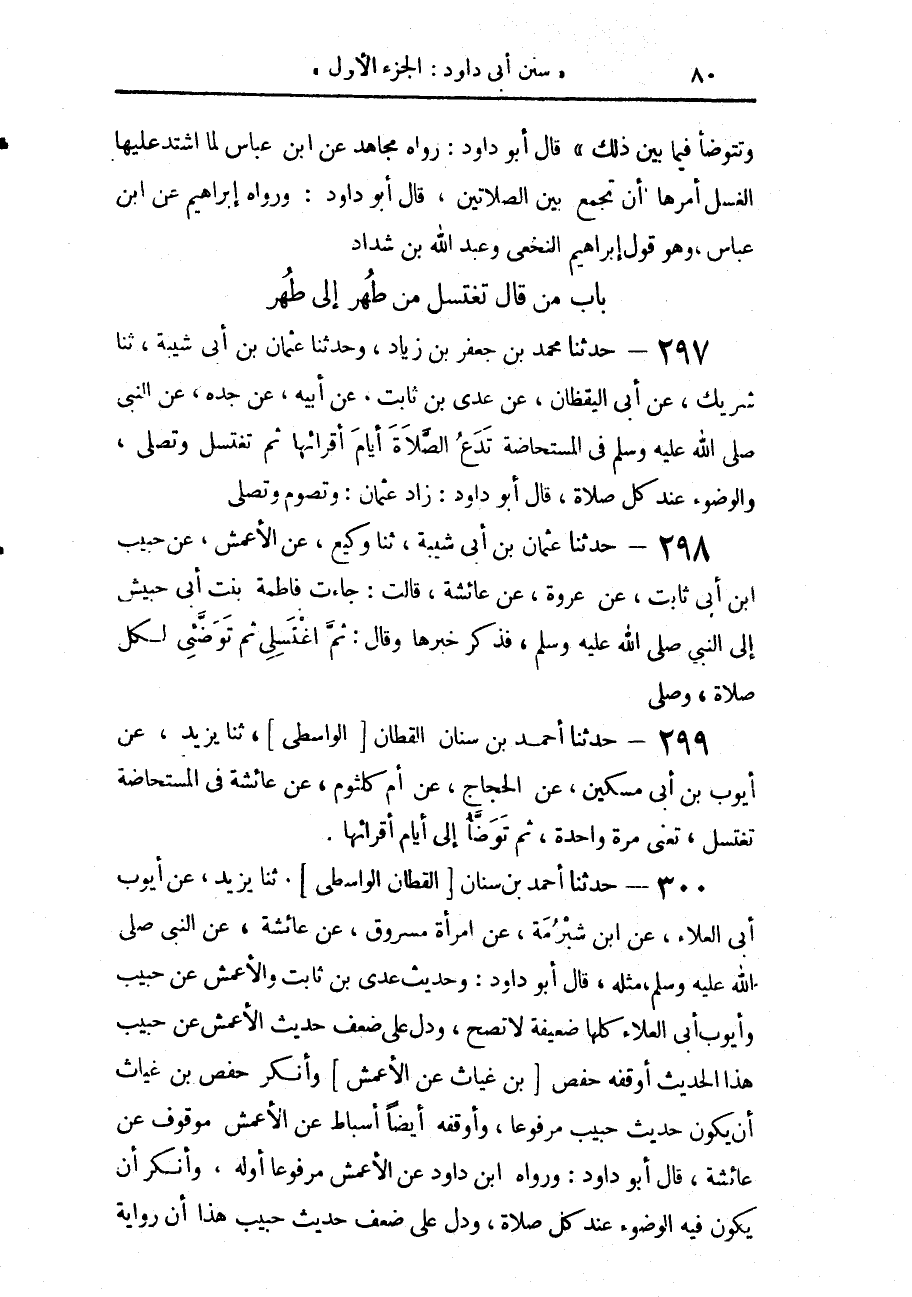 ٨٠ « سنن أبى داود : الجزء الأول »
وتتوضأ فيما بين ذلك » قال أبو داود : رواه مجاهد عن ابن عباس لما اشتد عليها
الغسل أمرها أن تجمع بين الصلاتين ، قال أبو داود : ورواه إبراهيم عن ابن
عباس ، وهو قول إبراهيم النخعى وعبد الله بن شداد
باب من قال تغتسل من طُهر إلى طُهر
٢٩٧ – حدثنا محمد بن جعفر بن زياد ، وحدثنا عثمان بن أبى شيبة ، ثنا
شريك ، عن أبى اليقظان ، عن عدى بن ثابت ، عن أبيه ، عن جده ، عن النبى
صلى الله عليه وسلم فى المستحاضة تَدَعُ الصَّلَاةَ أيامَ أقرائها ثم تغتسل وتصلى ،
والوضوء عند كل صلاة ، قال أبو داود : زاد عثمان : وتصوم وتصلى
٢٩٨ – حدثنا عثمان بن أبى شيبة ، ثنا وكيع ، عن الأعمش ، عن حبيب
ابن أبى ثابت ، عن عروة ، عن عائشة ، قالت : جاءت فاطمة بنت أبى حبيش
إلى النبي صلى الله عليه وسلم ، فذكر خبرها وقال : ثمَّ اغْتَسِلِى ثم تَوَضَّئِى لكل
صلاة ، وصلى
٢٩٩ – حدثنا أحمد بن سنان القطان [ الواسطى ] ، ثنا يزيد ، عن
أيوب بن أبى مسكين ، عن الحجاج ، عن أم كلثوم ، عن عائشة فى المستحاضة
تغتسل ، تعنى مرة واحدة ، ثم تَوَضَّأُ إلى أيام أقرائها .
٣٠٠ – حدثنا أحمد بن سنان [ القطان الواسطى ] . ثنا يزيد ، عن أيوب
أبى العلاء ، عن ابن شبْرُمَة ، عن امرأة مسروق ، عن عائشة ، عن النبى صلى
الله عليه وسلم ، مثله ، قال أبو داود : وحديث عدى بن ثابت والأعمش عن حبيب
وأيوب أبى العلاء كلها ضعيفة لا تصح ، ودل على ضعف حديث الأعمش عن حبيب
هذا الحديث أوقفه حفص [ بن غياث عن الأعمش ] وأنكر حفص بن غياث
أن يكون حديث حبيب مرفوعا ، وأوقفه أيضاً أسباط عن الأعمش موقوف عن
عائشة ، قال أبو داود : ورواه ابن داود عن الأعمش مرفوعا أوله ، وأنكر أن
يكون فيه الوضوء عند كل صلاة ، ودل على ضعف حديث حبيب هذا أن رواية